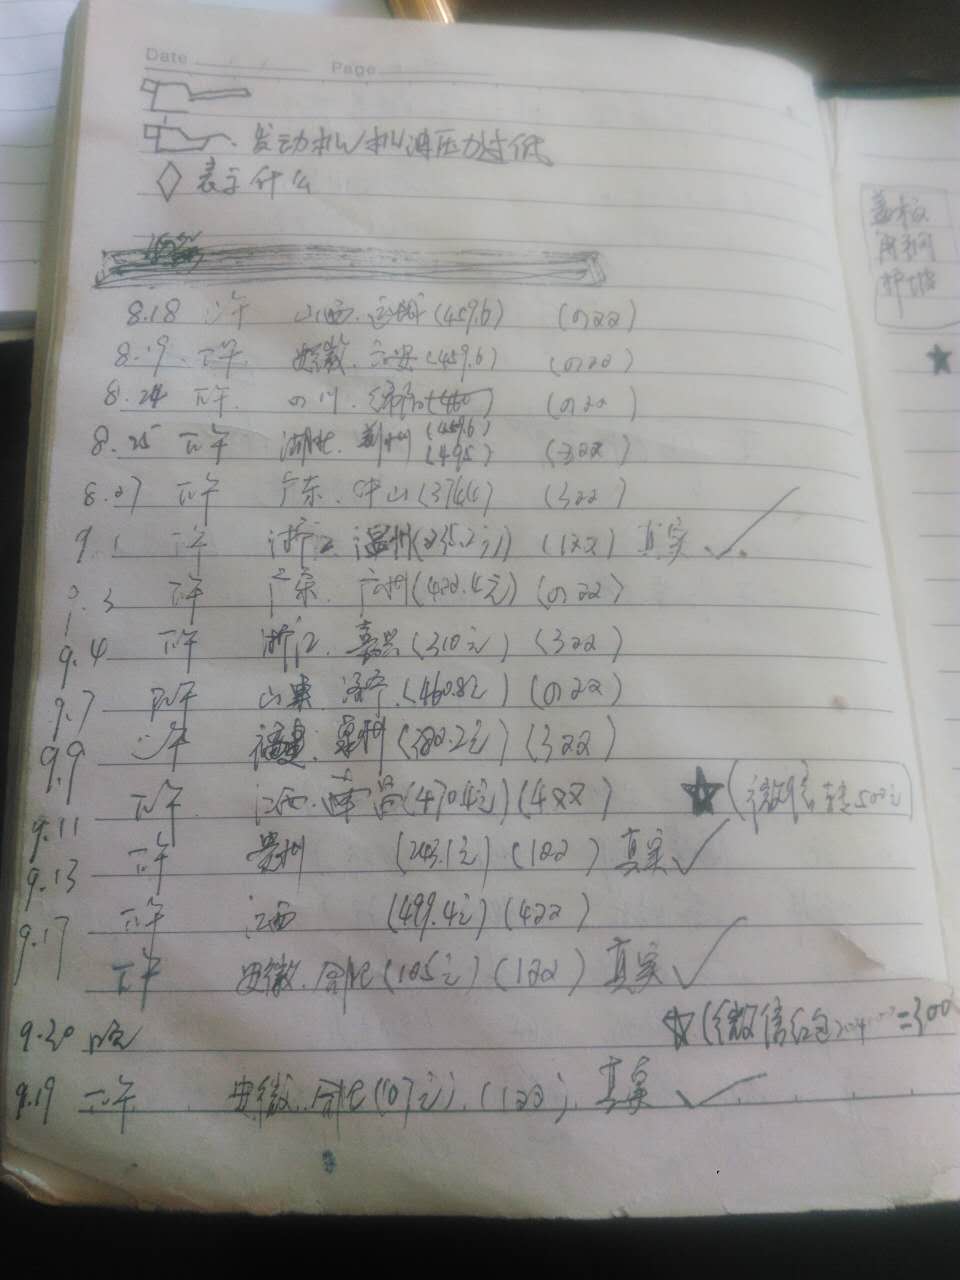 Date / / Page
发动机/机油压力过低
表示什么
8.18 下午 山西.运城(459.6) (022)
8.19. 下午 安徽.六安(459.6) (022)
8.24 下午. 四川. (460) (022)
8.25 下午 湖北.荆州(459.6)
(495) (322)
8.27 下午 广东.中山(374.4) (322)
9.1 下午 浙江.温州(235.2元) (122) 真实
9.3 下午 广东.广州(422.4元) (022)
9.4 下午 浙江.嘉兴(310元) (322)
9.7 下午 山东.济宁.(460.8元) (022)
9.9 下午 福建.泉州(382.2元) (322)
9.11 下午. 江西.南昌(470.4元)(422) (微信转500元)
9.13 下午 贵州 (243.1元) (122) 真实
9.17 下午 江西 (499.4元) (422)
下午 安徽.合肥(105元) (122) 真实
9.20 晚 (微信红包 =300
9.19 下午 安徽.合肥(107元).(122). 真实
盖板
护坡